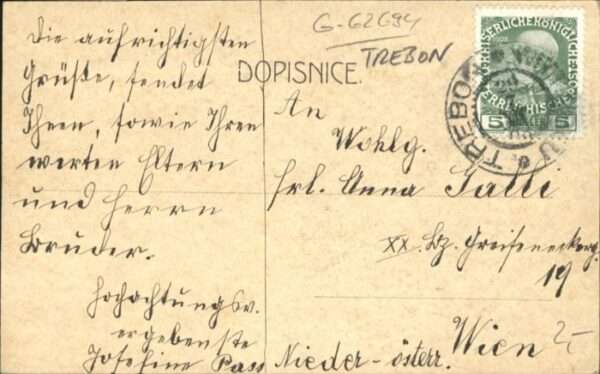 Die aufrichtigsten
Grüße, sendet
Ihnen, sowie Ihren
werten Eltern
und Herrn
Bruder.
Hochachtungsv.
ergebenste
Josefine Pass
G-62694
TREBON
DOPISNICE.
An
Wohlg.
Frl. Anna Salli
XX. Bz. Greiseneckerg.
19
Wien
Nieder-österr.
2-
5
5
TREBO